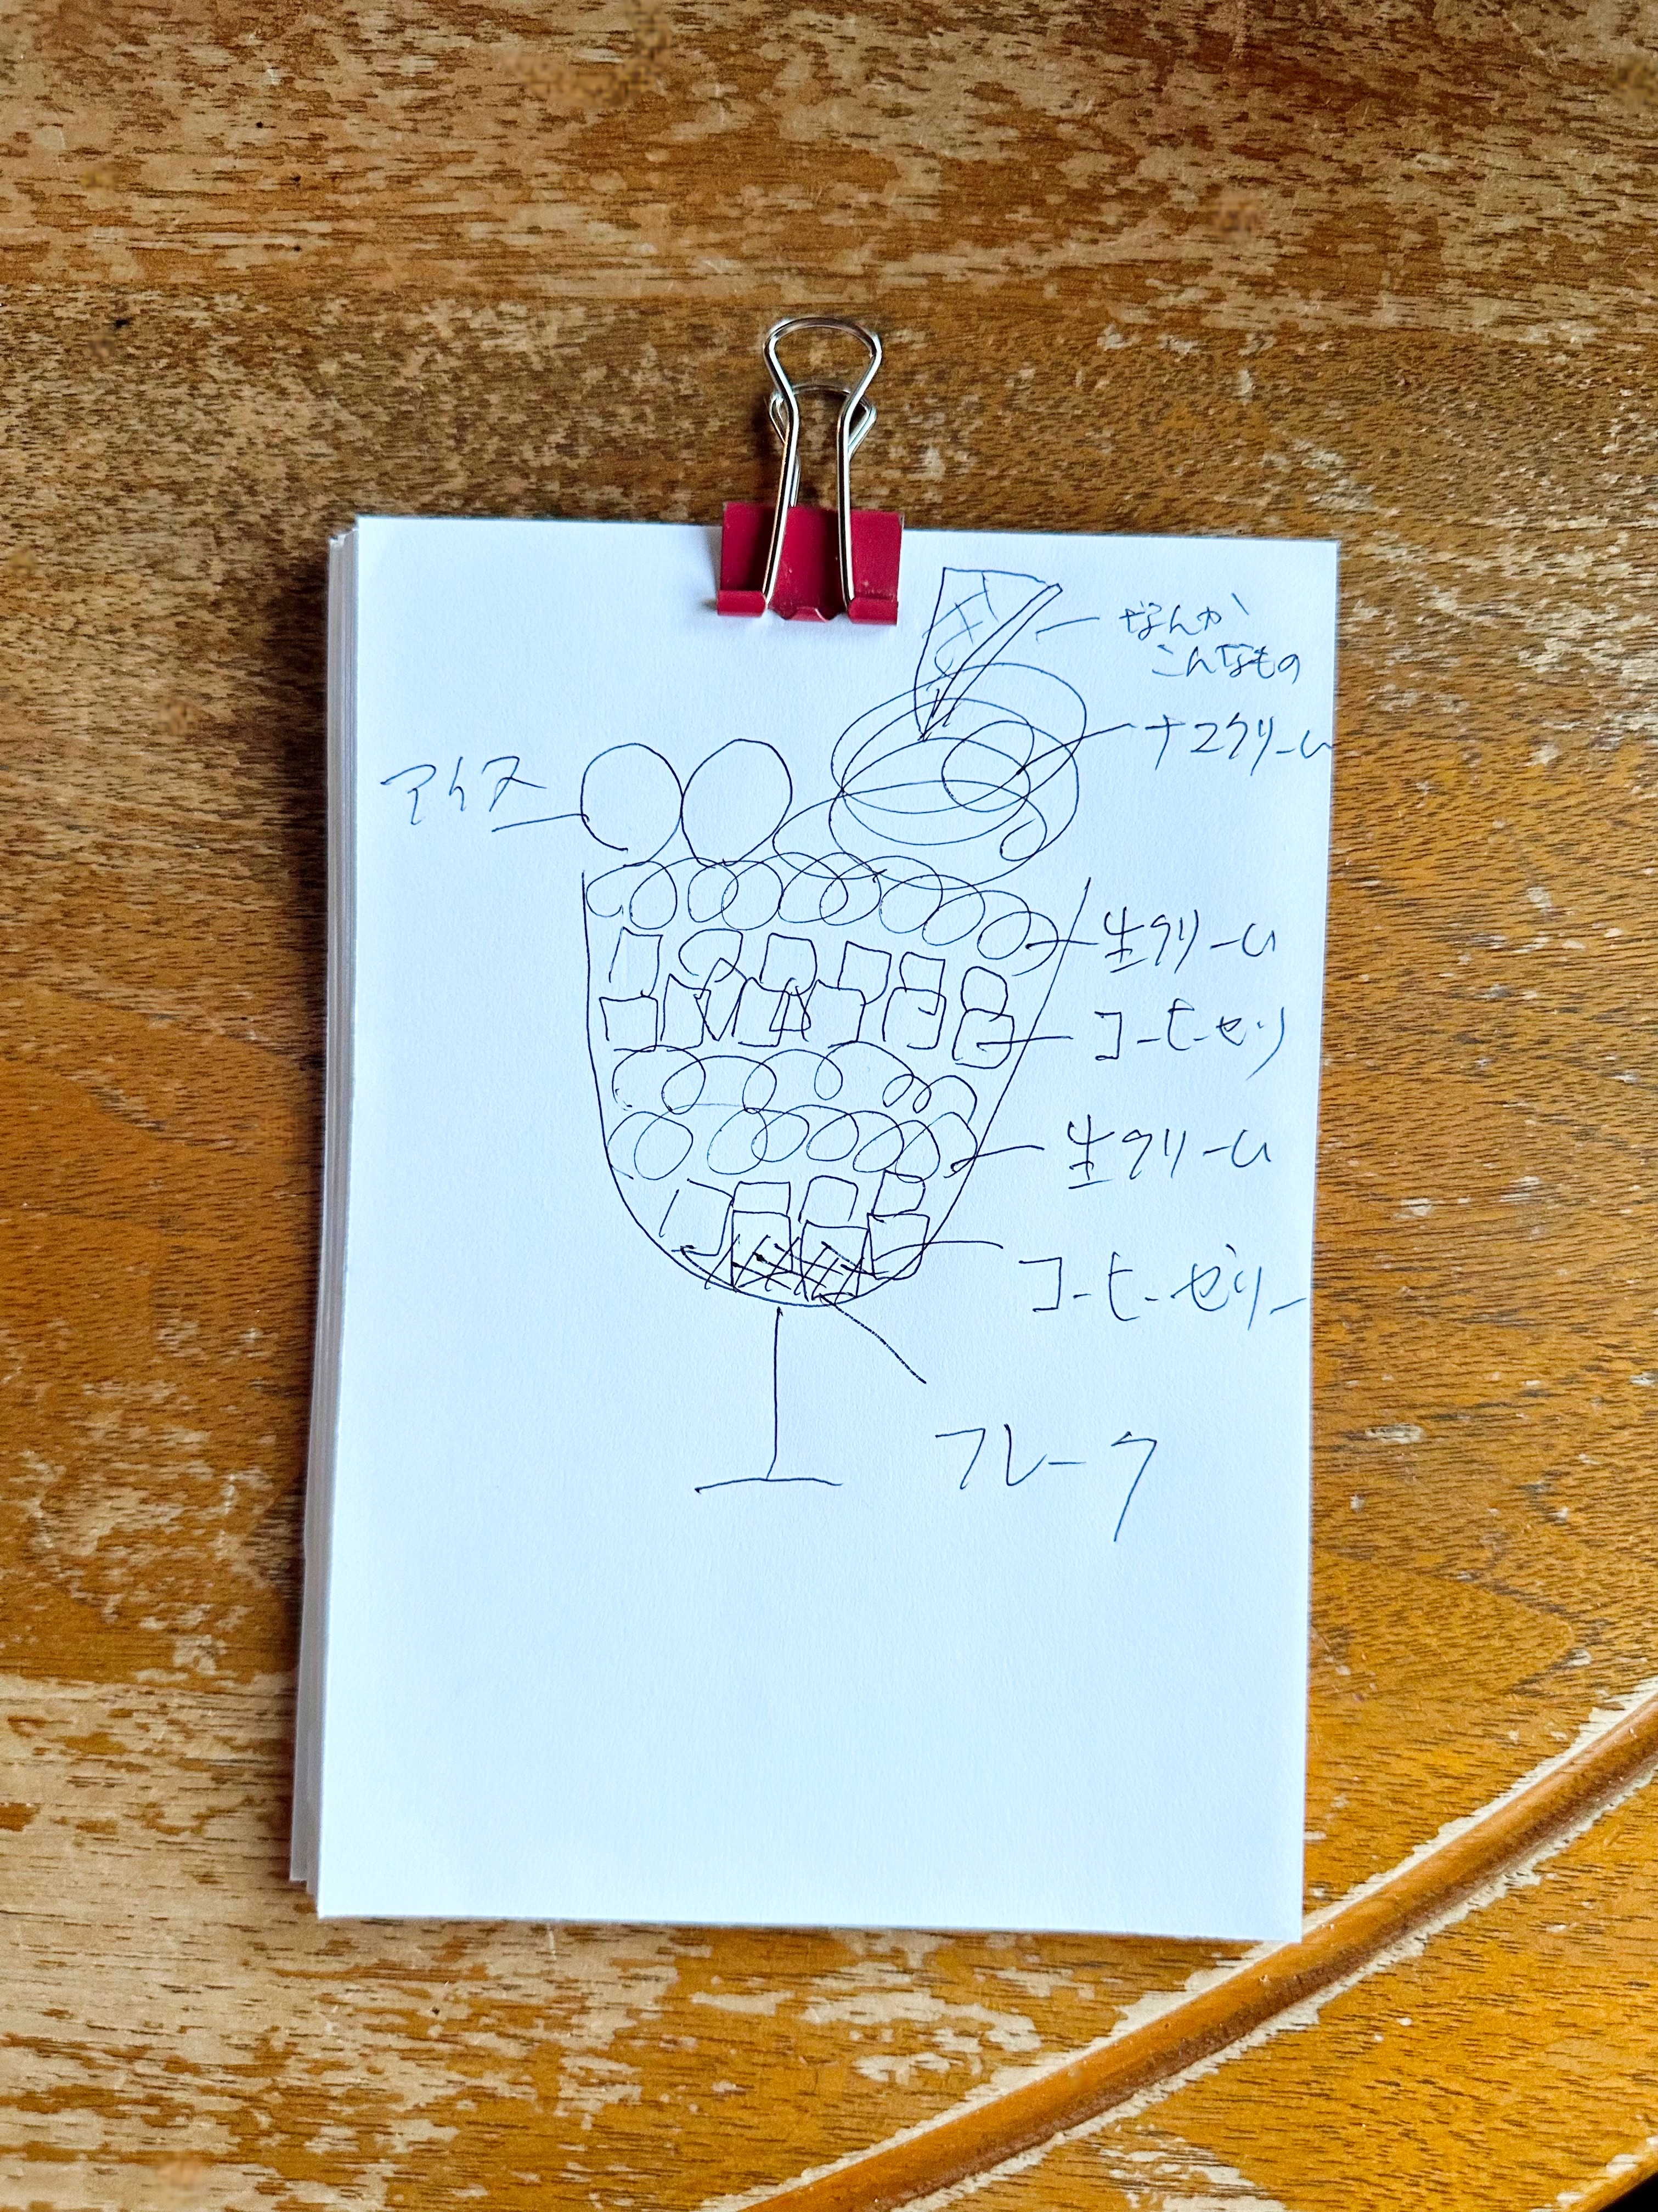 なんか
こんなもの
ナマクリーム
アイス
生クリーム
コーヒーゼリ
生クリーム
コーヒーゼリー
フレーク